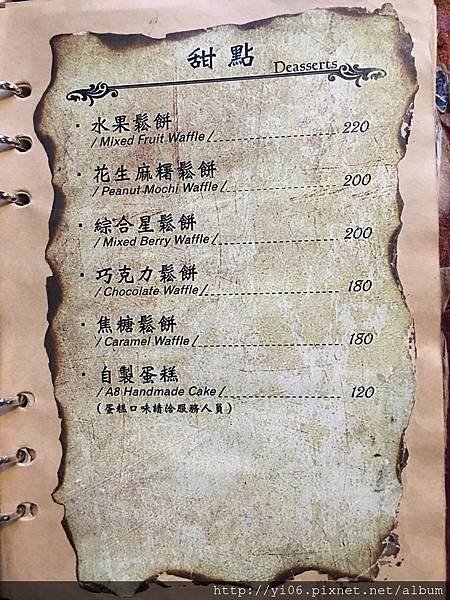 甜點 Deasserts
·水果鬆餅
/ Mixed Fruit Waffle / 220
·花生麻糬鬆餅
/ Peanut Mochi Waffle / 200
·綜合星鬆餅
/ Mixed Berry Waffle / 200
·巧克力鬆餅
/ Chocolate Waffle / 180
·焦糖鬆餅
/ Caramel Waffle / 180
·自製蛋糕
/ A8 Handmade Cake / 120
(蛋糕口味請洽服務人員)
http://yi06.pixnet.net/album